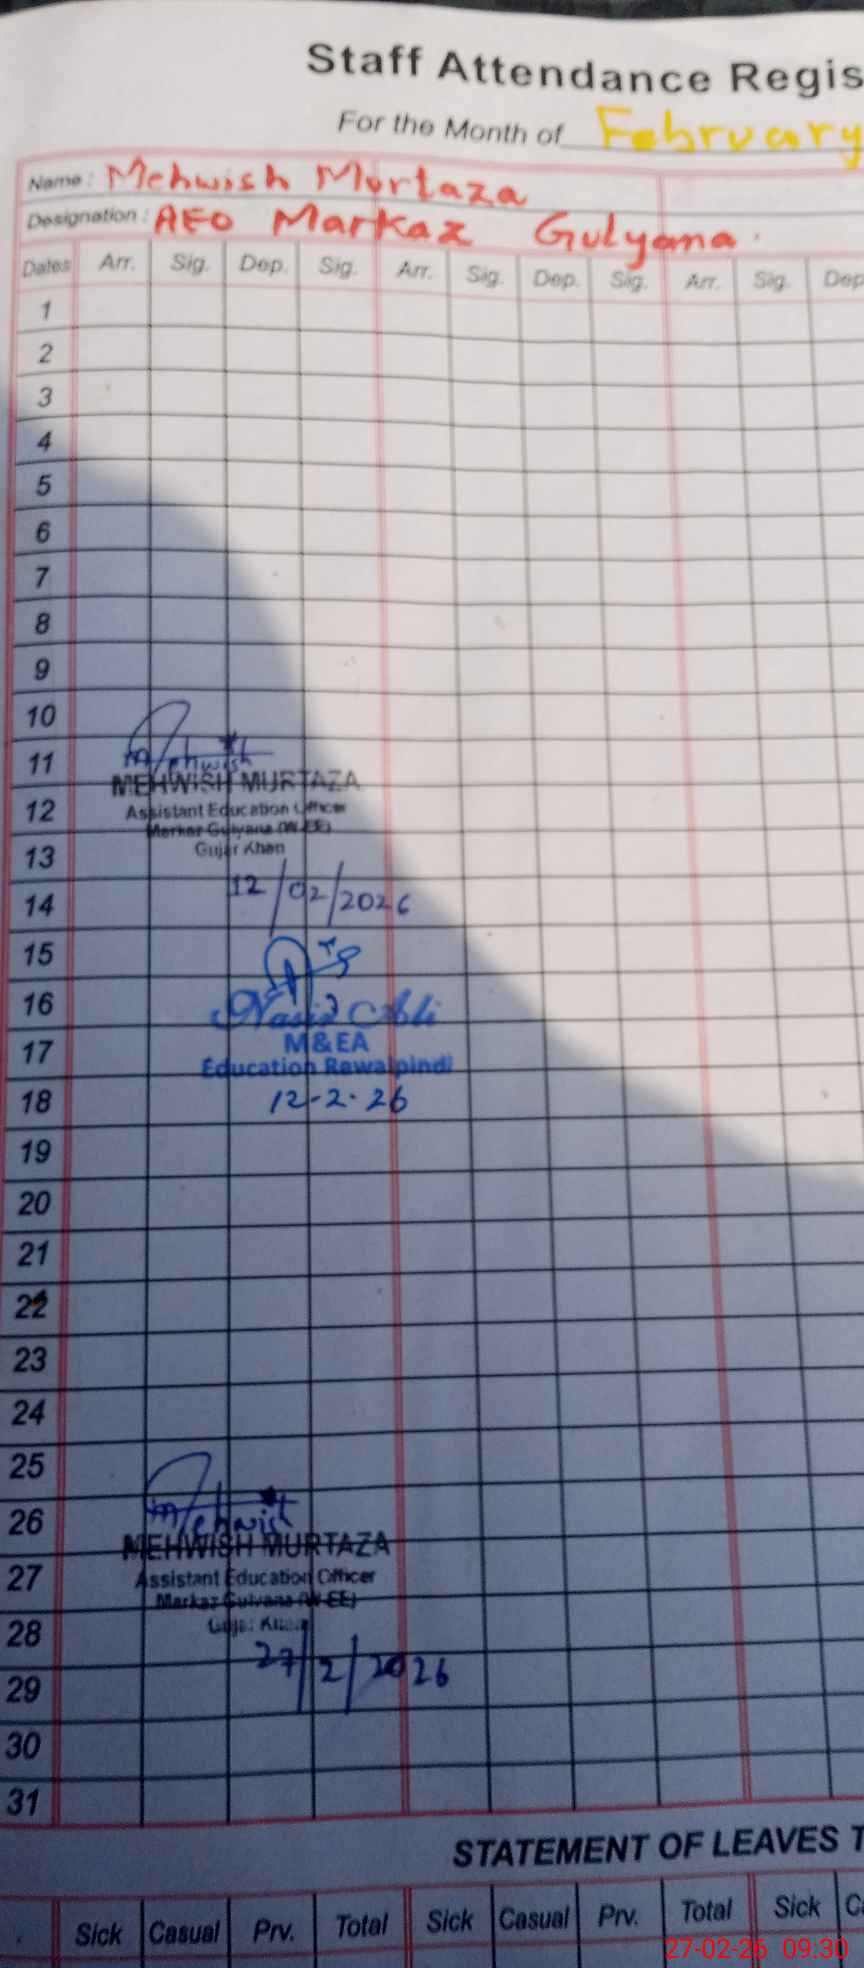 Staff Attendance Regis
For the Month of February
Name : Mehwish Murtaza
Designation : AEO Markaz Gulyana.
Dates Arr. Sig. Dep. Sig. Arr. Sig. Dep. Sig. Arr. Sig. Dep
1
2
3
4
5
6
7
8
9
10
11
Mehwish
MEHWISH MURTAZA
12
Assistant Education Officer
Markaz Gulyana (W-EE)
13
Gujar Khan
12/02/2026
14
15
16
Nasir Ali
17
M&EA
Education Rawalpindi
18
12-2-26
19
20
21
22
23
24
25
26
Mehwish
MEHWISH MURTAZA
27
Assistant Education Officer
Markaz Gulyana (W-EE)
28
Gujar Khan
27/2/2026
29
30
31
STATEMENT OF LEAVES T
Sick Casual Prv. Total Sick Casual Prv. Total Sick Ca
27-02-26 09:30